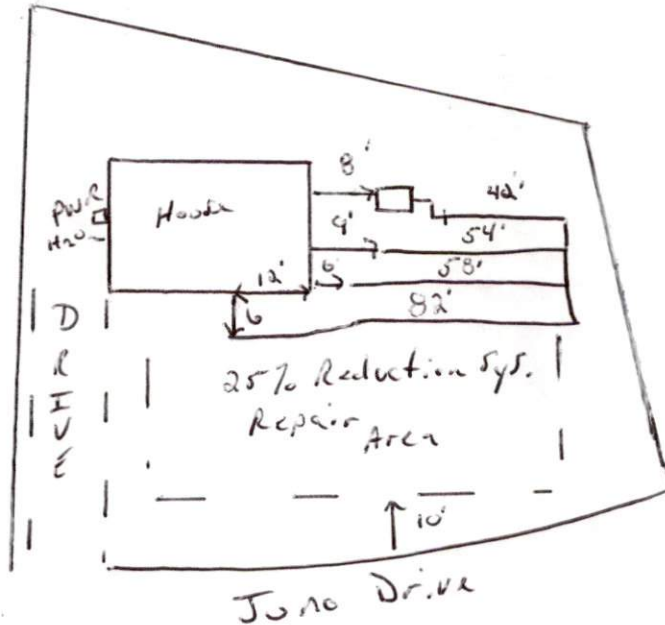 8'
42'
PWR
H2O
House
9'
54'
6'
58'
12'
82'
6
DRIVE
25% Reduction Sys.
Repair Area
10'
Juno Drive